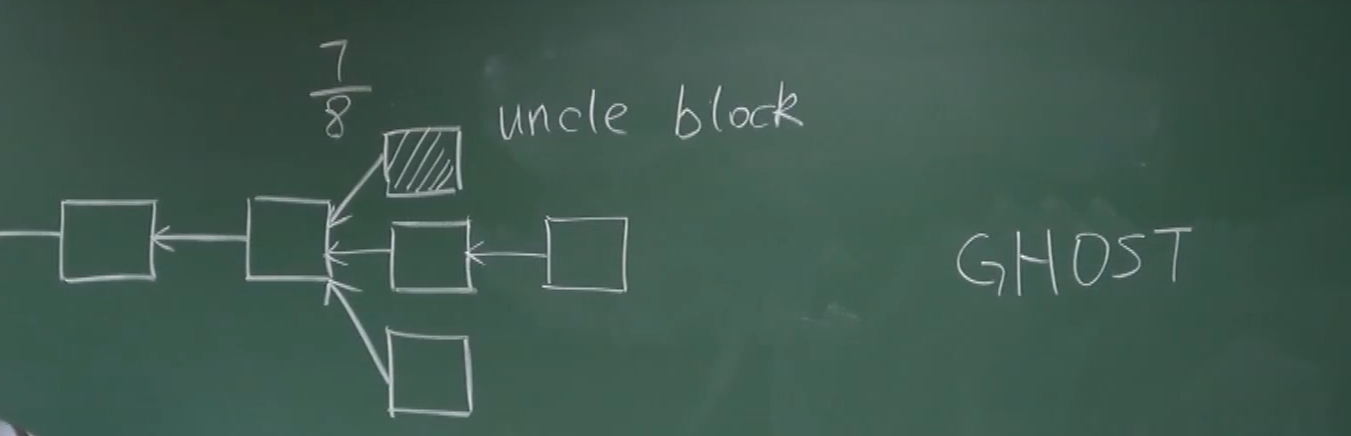 7
8
uncle block
GHOST